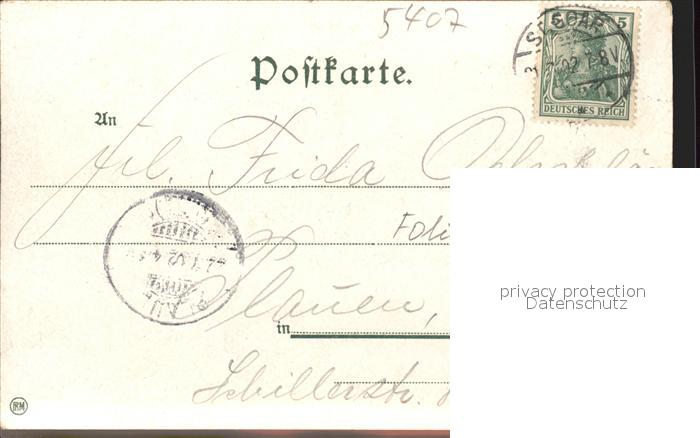 5407
Postkarte.
ST. GOAR
5
DEUTSCHES REICH
An
Frl. Frida
Plauen,
in
Schillerstr.
privacy protection
Datenschutz